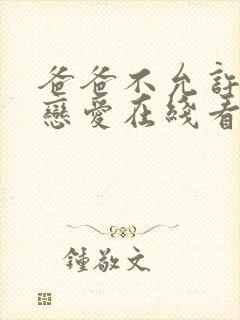 爸爸不允許
戀愛在綫看
鍾敬文